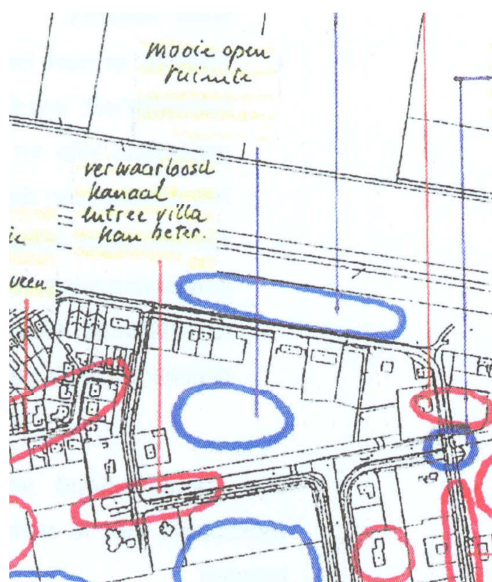 mooie open
ruimte
verwaarloosd
kanaal
entree villa
kan beter
veen